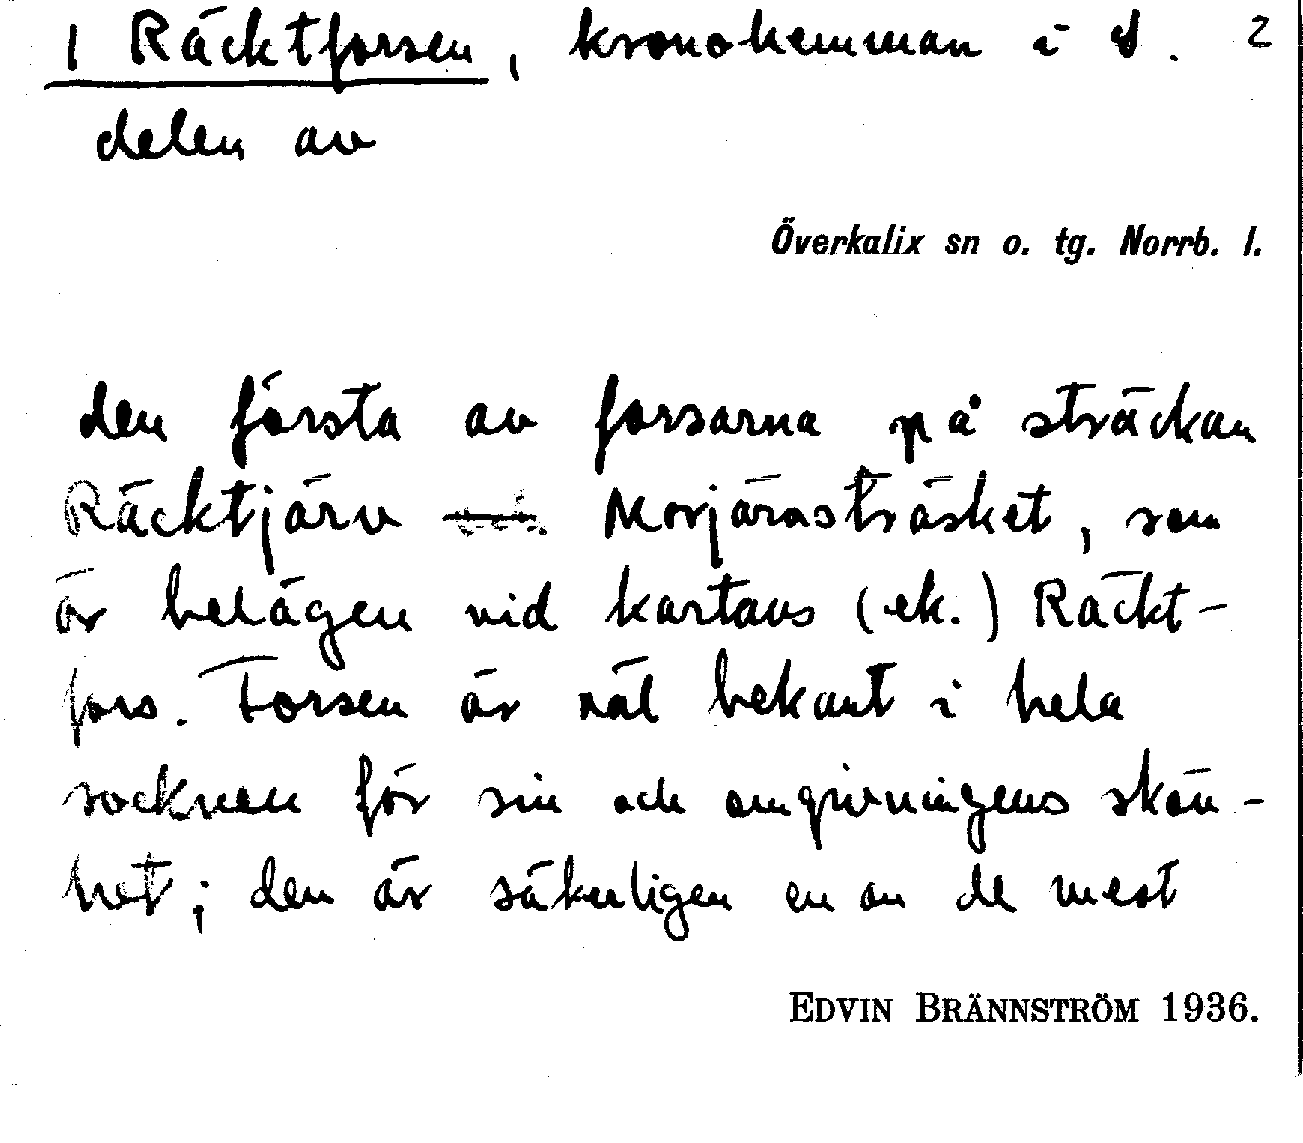 1 Räcktforsen, kronohemman i S. 2
delen av
Överkalix sn o. tg. Norrb. l.
den första av forsarna på sträckan
Räcktjärv Morjärnsträsket, som
är belägen vid kartans (ek.) Räckt-
fors. Forsen är väl bekant i hela
socknen för sin och omgivningens skön-
het; den är säkerligen en av de mest
EDVIN BRÄNNSTRÖM 1936.